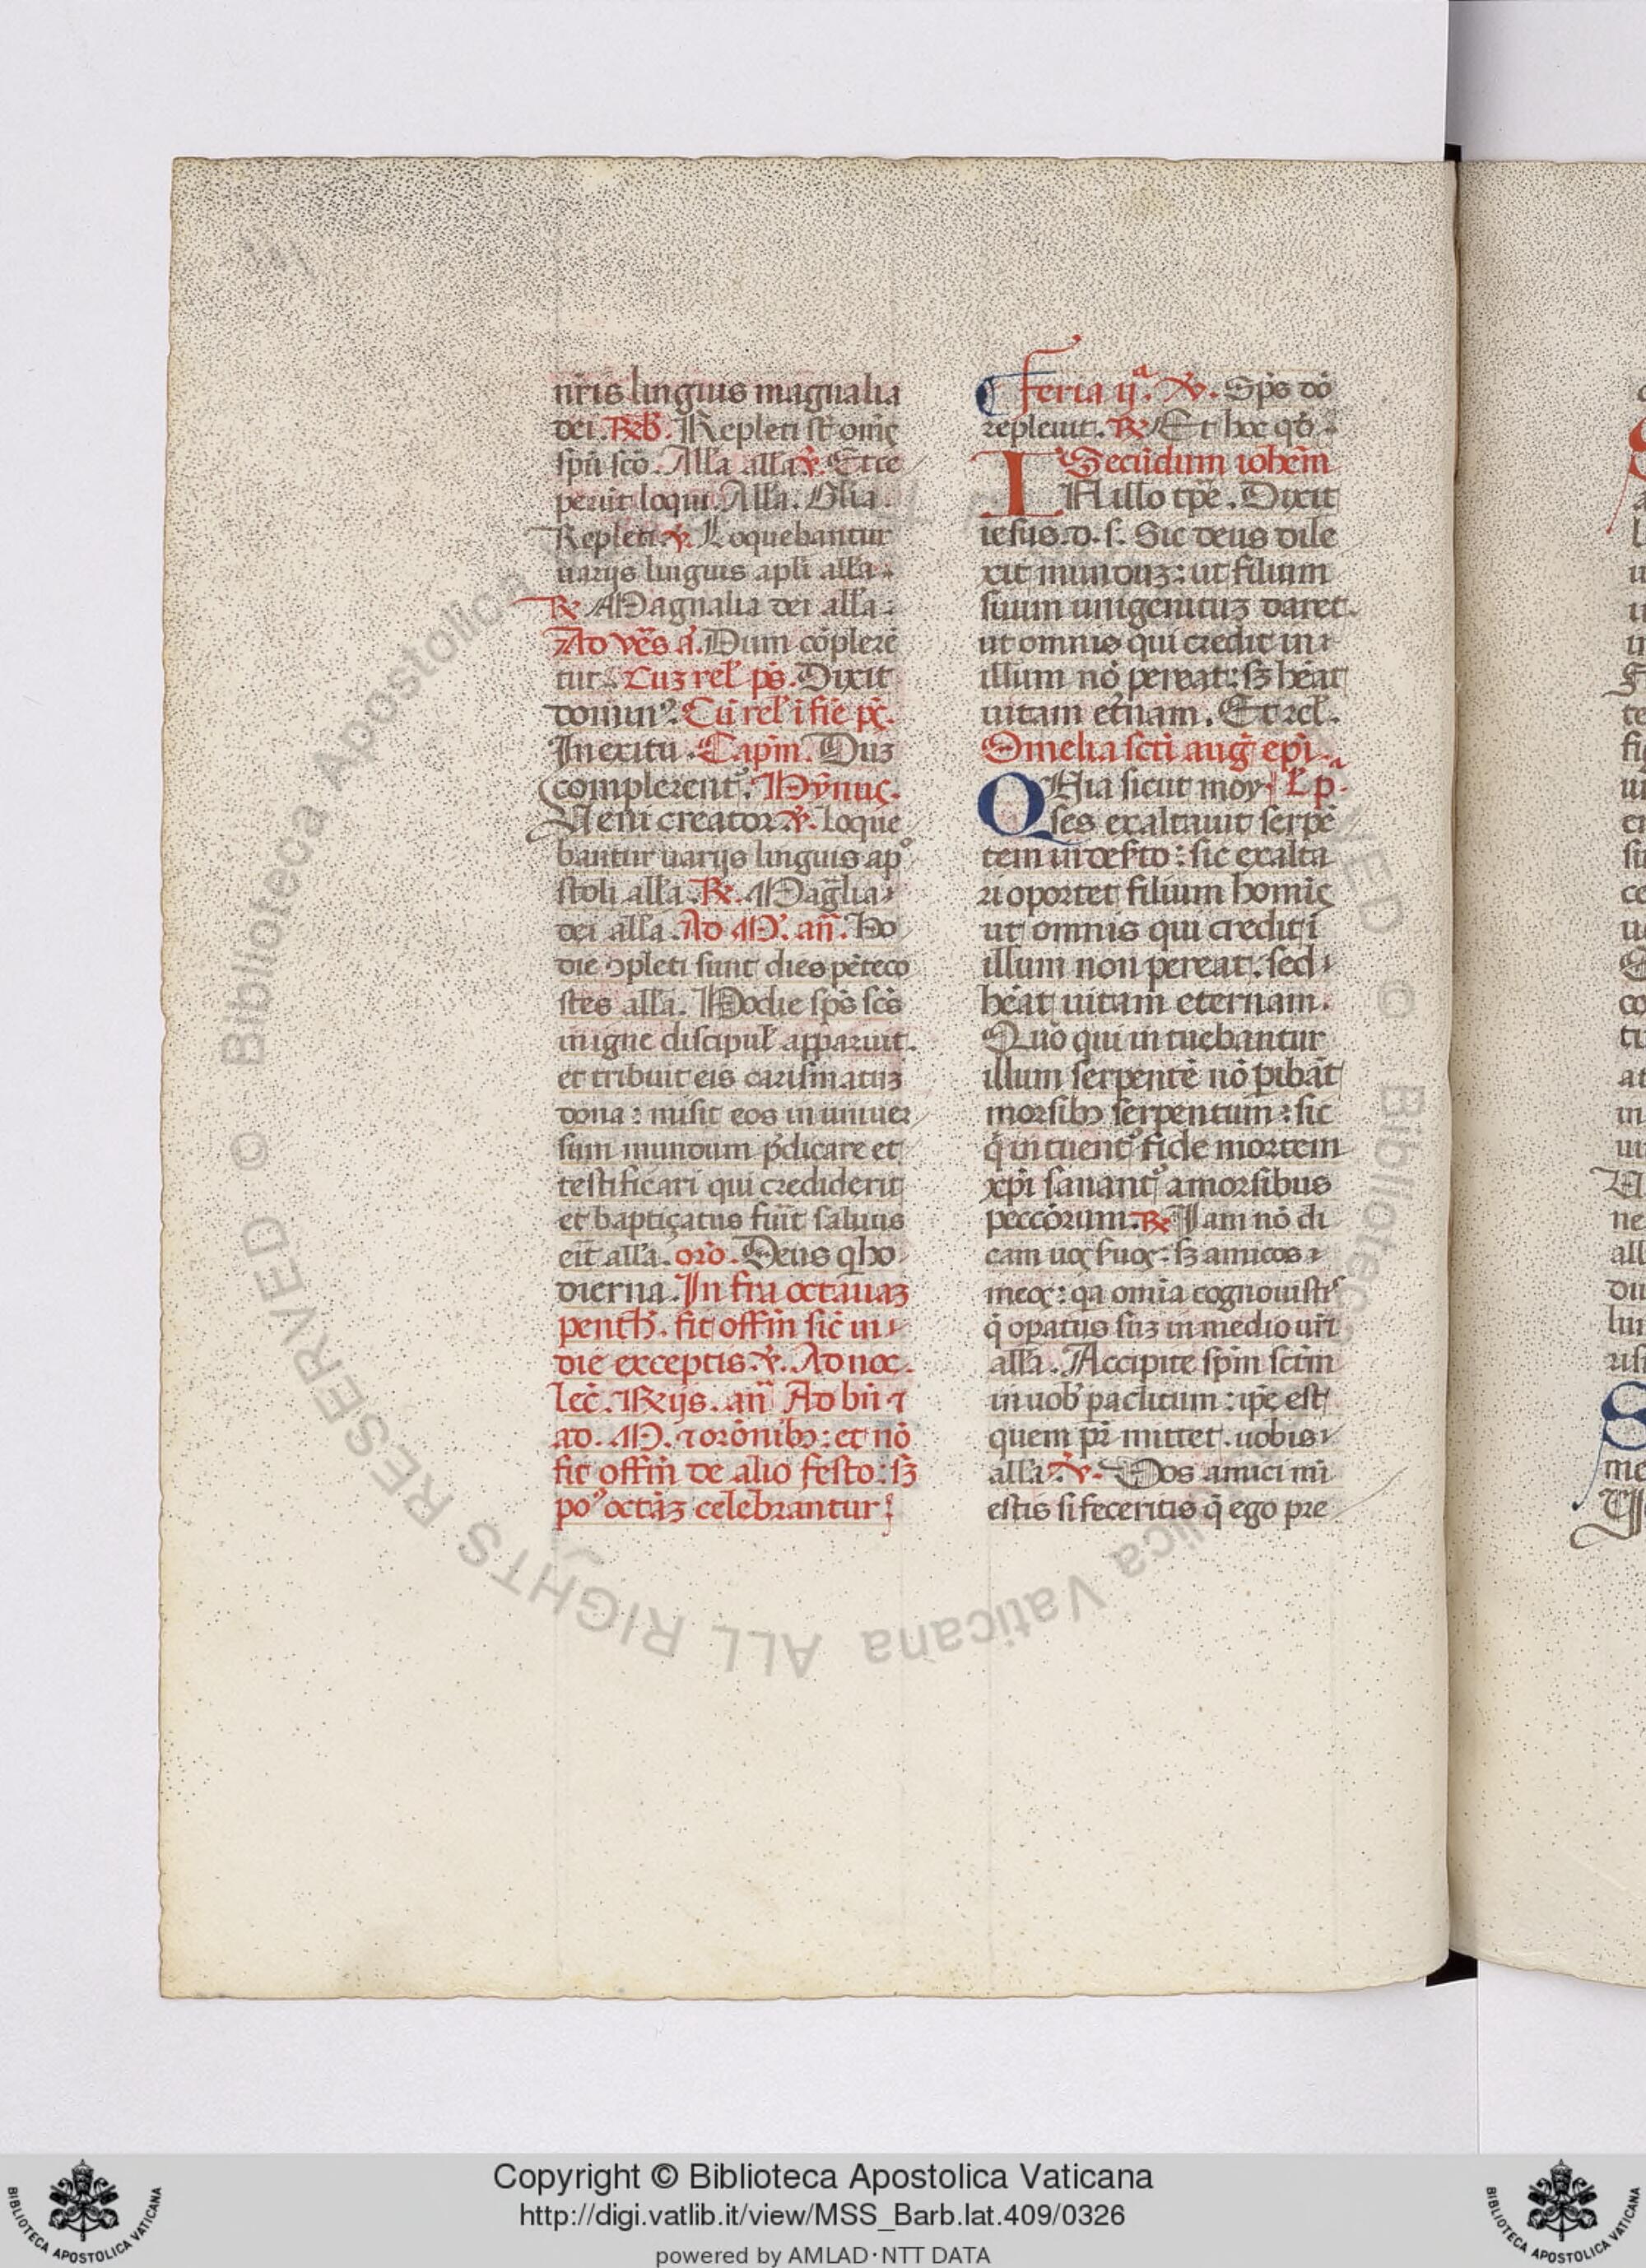 nr̄is linguis magnalia
dei. Rb̄. Repleti st̄ om̄s
spū sc̄o. Alla alla ℣. Et ce
perūt loqui. Alla. Glia.
Repleti. ℣. Loquebantur
uarijs linguis apl̄i all̄a.
℟ Magnalia dei all̄a.
Ad ve᷒s a᷒. Dum cōplerē
tur. Cuz rel̄ ps̄. Dixit
domin⁹. Cū rel̄ i fīe px̄.
In exitu. Capl̄m. Duz
complerent᷑. Hȳnus.
Veni creator ℣. Loque
bantur uarijs linguis ap⁰
stoli all̄a. ℟. Mag̅lia
dei all̄a. Ad M. an̄. Ho
die ꝯpleti sunt dies pēteco
stes all̄a. Hodie sp̄s sc̄s
in igne discipul̄ apparuit.
et tribuit eis carismatuz
dona: misit eos in uniuer
sum mundum p̄dicare et
testificari qui crediderit
et baptiçatus fu̅it saluus
er̄it all̄a. or̄o. Deus q̄ ho
dierna. In fra octauaz
penth̄. fit offīm sic̄ in
die exceptis. ℣. Ad noc.
lec̄. ℟ijs. an̄ Ad bn̄ ⁊
ad. M. ⁊ orōnibꝫ: et nō
fit offīm de alio festo: sꝫ
po⁹ octāz celebrantur:
¶ Feria ijᵃ. ℣. Sp̄s dō
repleuit. ℟ Et hoc qđ.
Secūdum ioh̄em
IN illo tp̄e. Dixit
iesus. d. s. Sic deus dile
xit munduz: ut filium
suum unigenituz daret.
ut omnis qui credit in
illum nō pereat: sꝫ hēat
uitam et̄nam. Et rel̄.
Omelia sc̄ti aug̅ ep̄i.
QUia sicut moy Lᵃ p.
ses exaltauit serpē
tem in deṡto: sic exalta
ri oportet filium homis̄
ut omnis qui credit ī
illum non pereat: sed
hēat uitam eternam.
Quō qui intuebantur
illum serpentē nō p̄ibāt
morsibꝫ serpentum: sic
q̇ intuent᷑ fide mortem
xp̄i sanant᷑ a morsibus
peccōrum. ℟ Iam nō di
cam uos ṡuos: sꝫ amicos
meos: qa om̄ia cognouistis
q̄ opatus suz in medio ur̄i
all̄a. Accipite sp̄m sc̄tm
in uob̄ paclitum: ip̄e est
quem pr̄ mittet. uobis
all̄a ℣. Vos amici mī
estis si feceritis q̄ ego pre
Copyright © Biblioteca Apostolica Vaticana
http://digi.vatlib.it/view/MSS_Barb.lat.409/0326
powered by AMLAD·NTT DATA